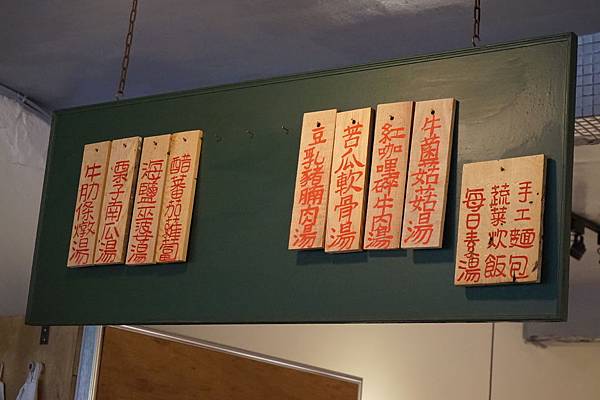 手工麵包
蔬菜炊飯
每日湯
牛菌菇菇湯
紅咖哩碎牛肉湯
苦瓜軟骨湯
豆乳豬腩肉湯
醋番茄
海鹽巫婆湯
栗子南瓜湯
牛肋條燉湯